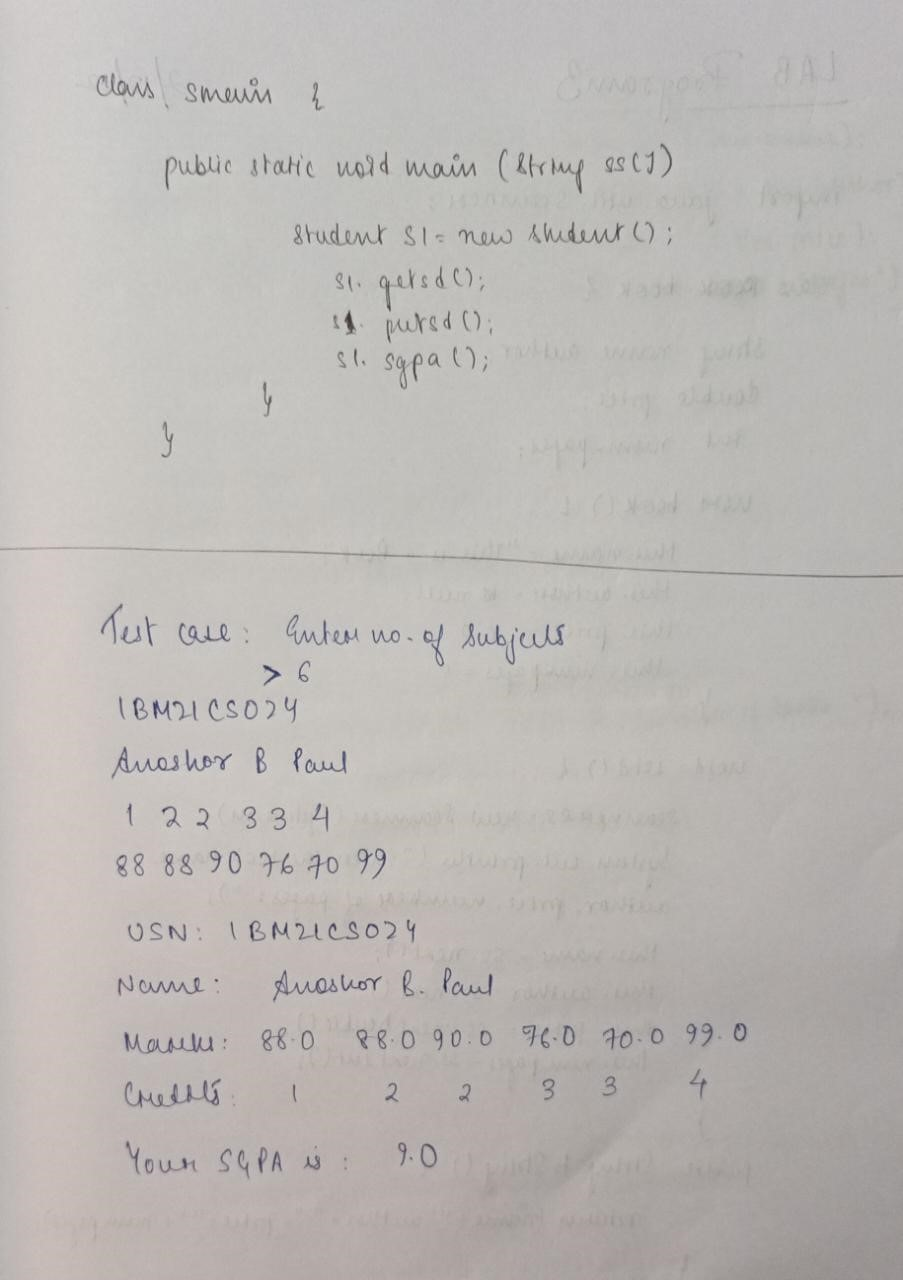 class smain {
public static void main (String ss[])
student s1 = new student ();
s1. getsd ();
s1. putsd ();
s1. sgpa ();
}
}
Test case: Enter no. of subjects
> 6
1BM21CS024
Anoshor B Paul
1 2 2 3 3 4
88 88 90 76 70 99
USN: 1BM21CS024
Name: Anoshor B. Paul
Marks: 88.0 88.0 90.0 76.0 70.0 99.0
Credits: 1 2 2 3 3 4
Your SGPA is : 9.0